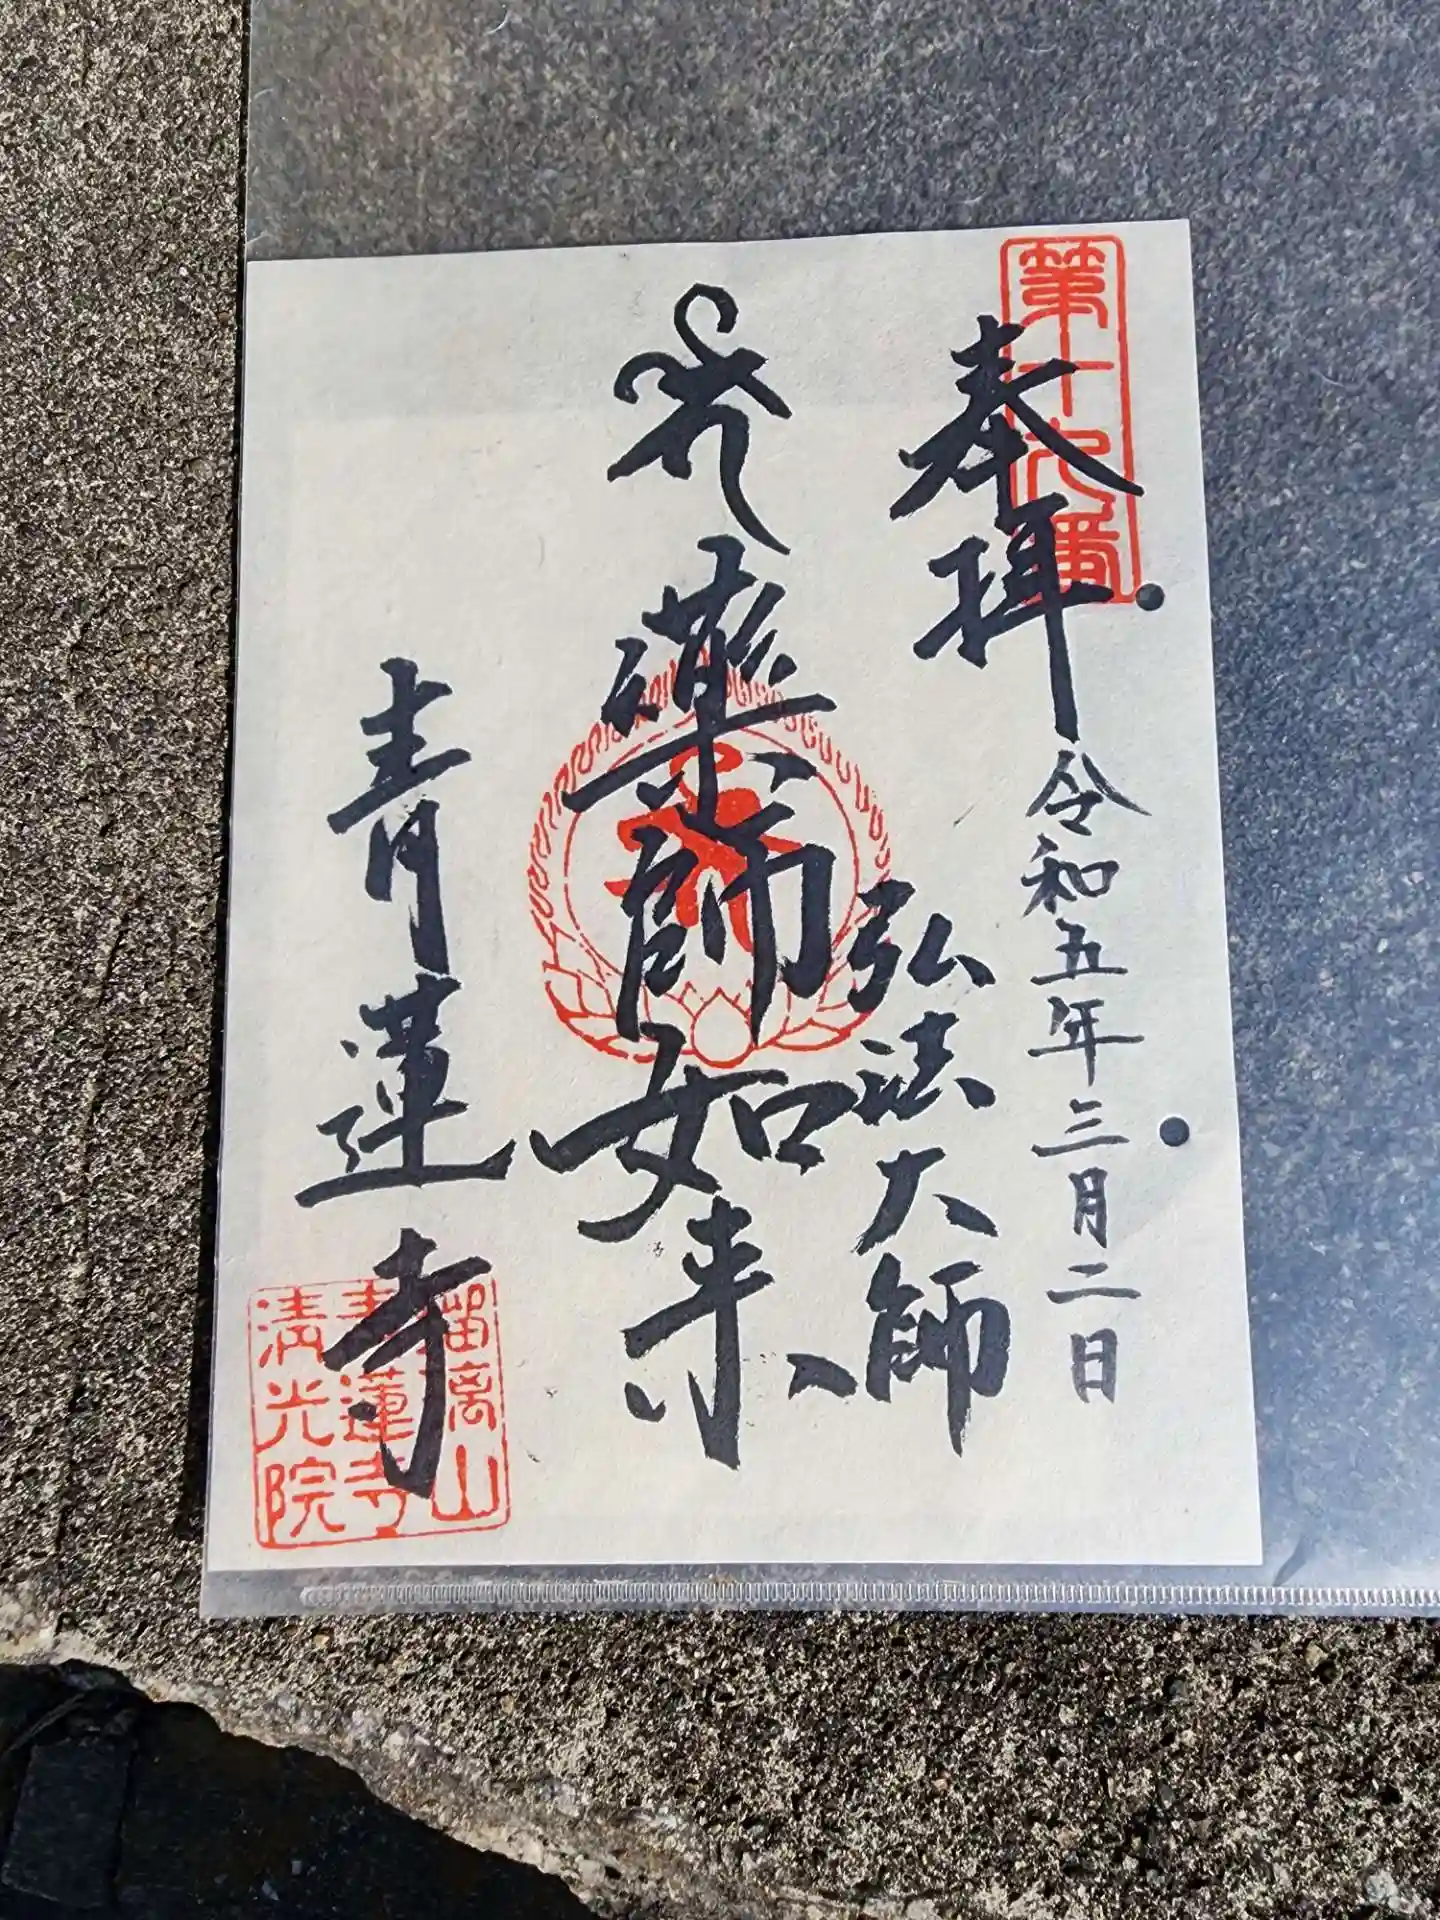 第十九番
奉拝
令和五年三月二日
弘法大師
薬師如来
青蓮寺
瑠璃山
青蓮寺
清光院